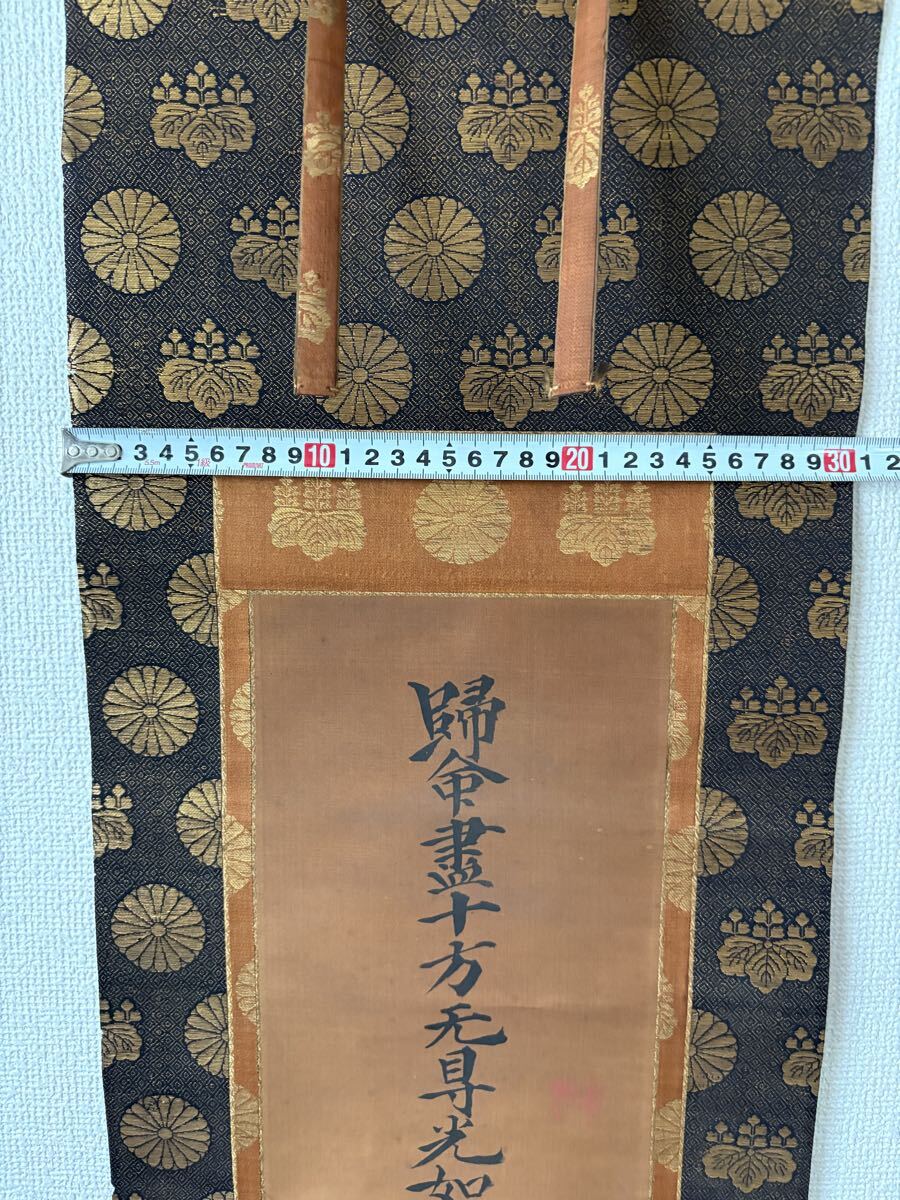 3 4 5 6 7 8 9 10 1 2 3 4 5 6 7 8 9 20 1 2 3 4 5 6 7 8 9 30 1 2
5.5m 1級
歸命盡十方无㝵光如